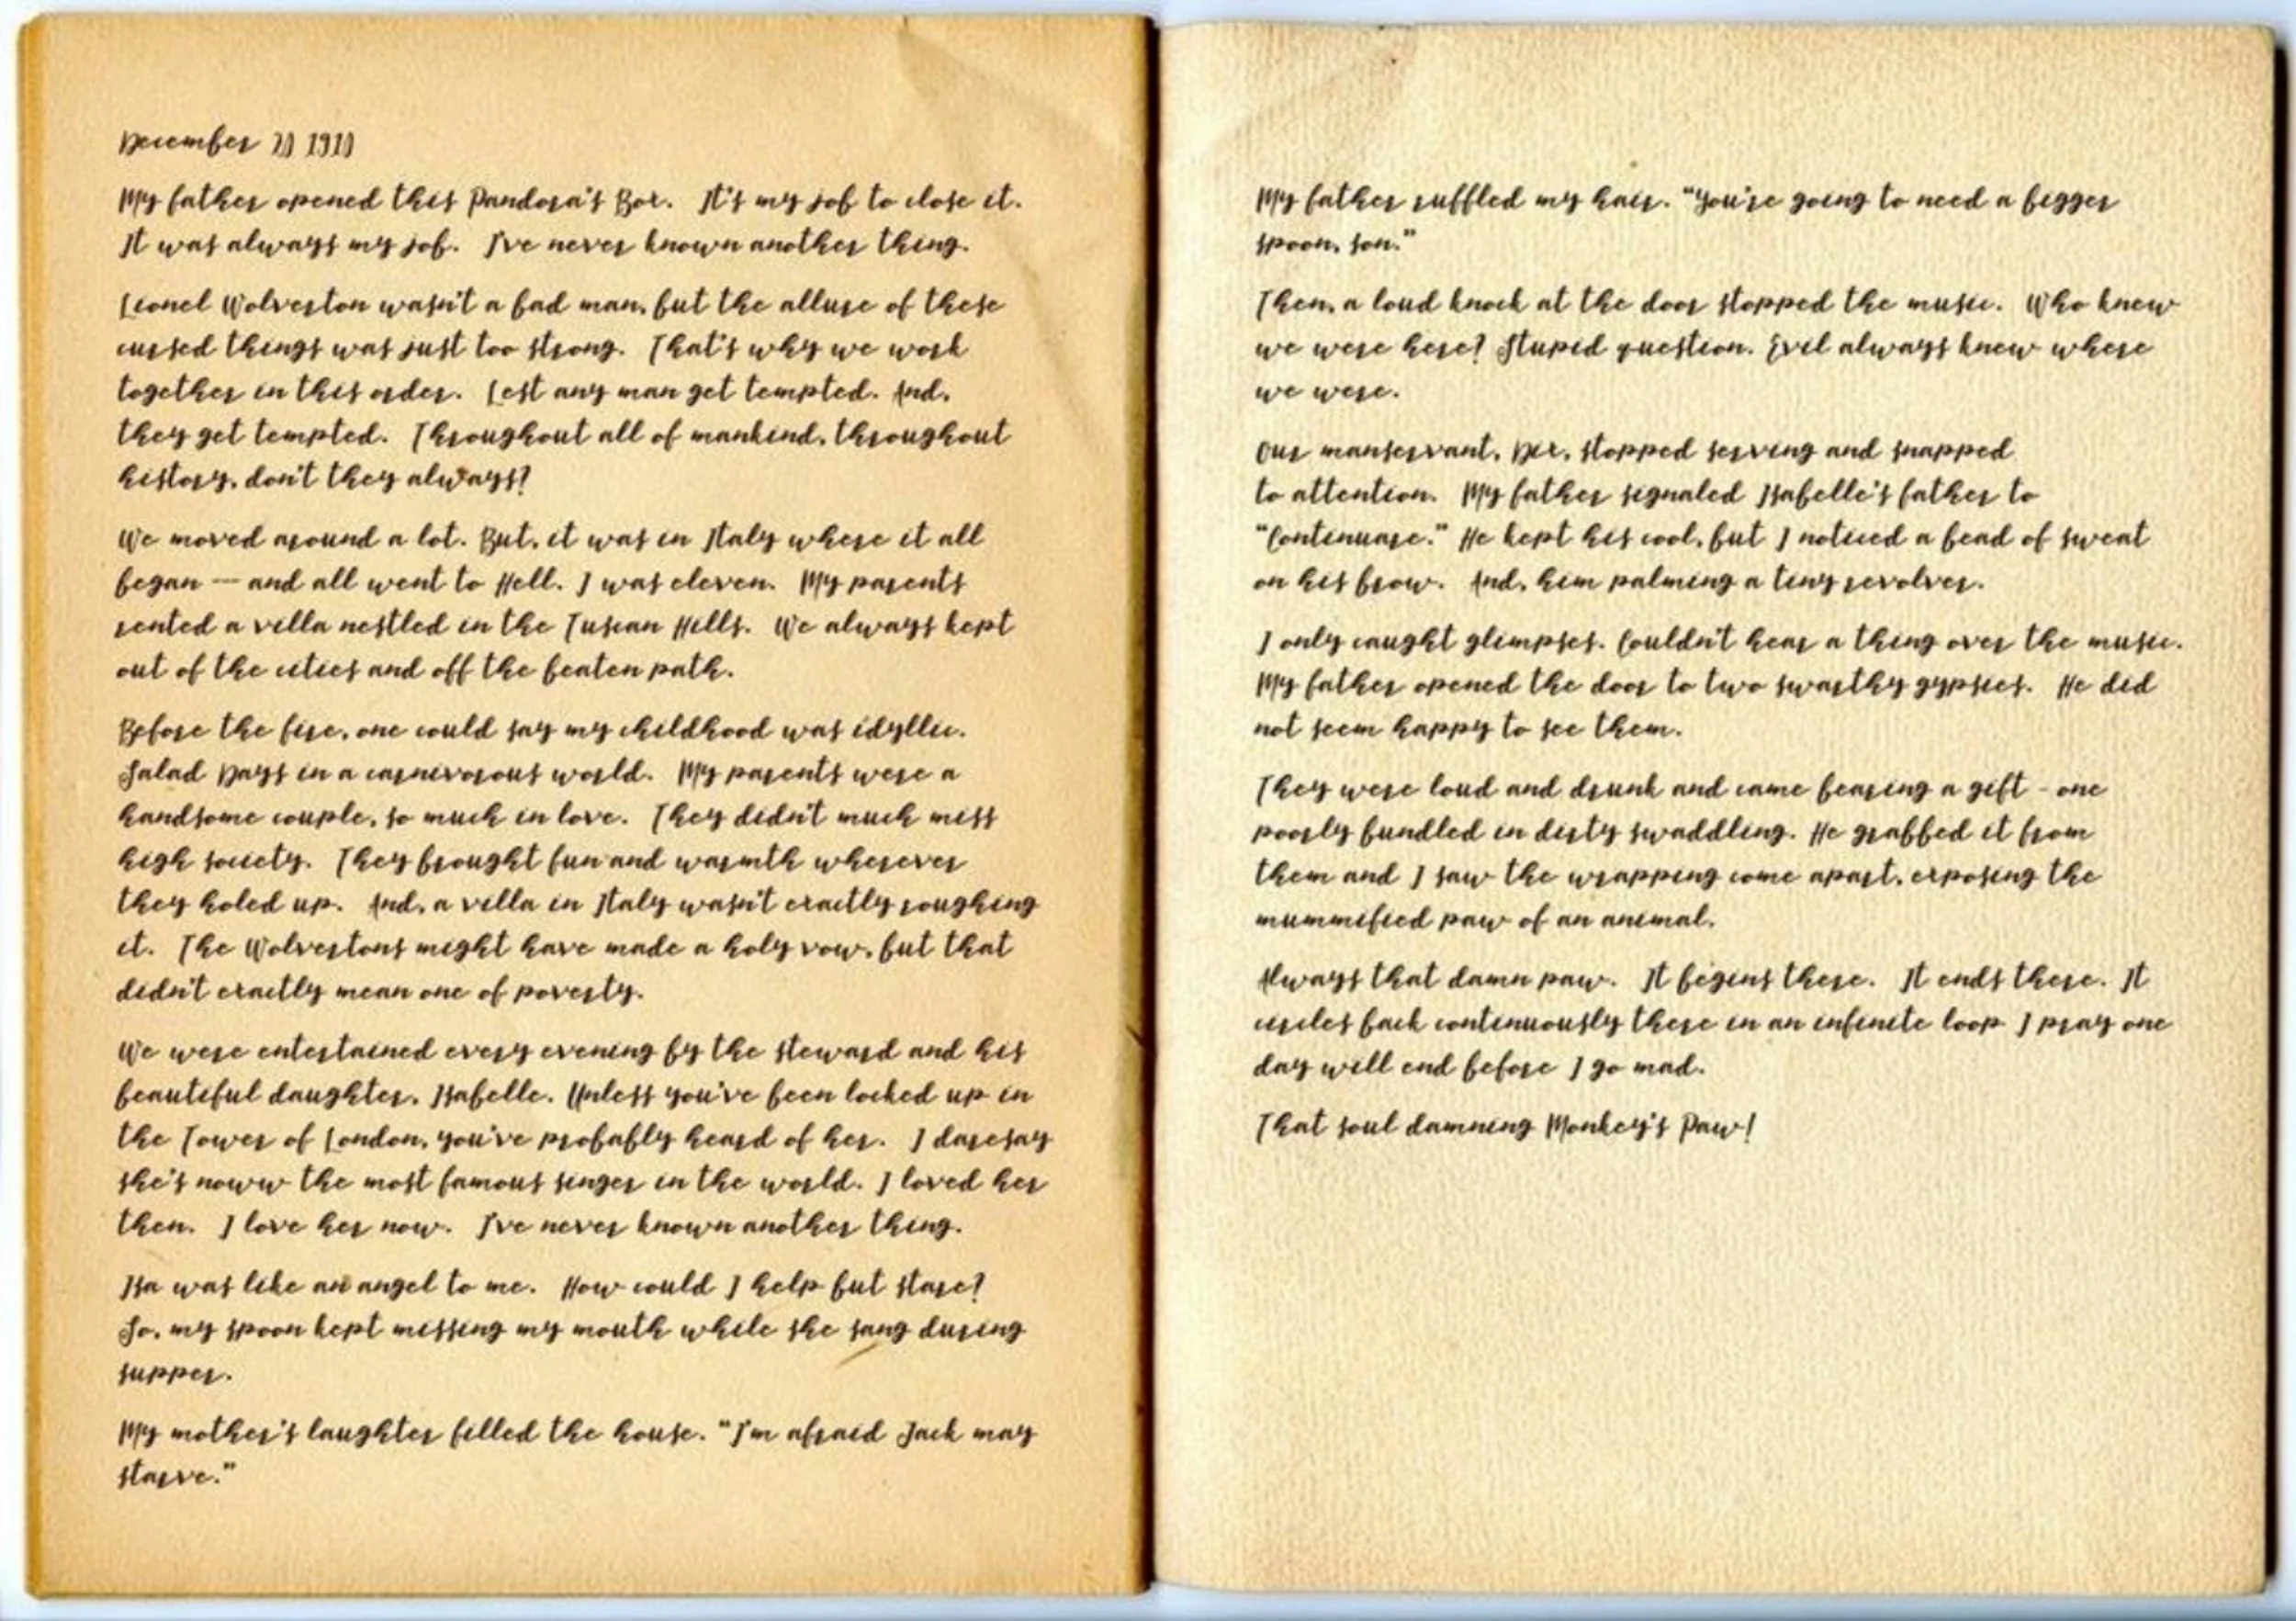 December 20 1910
My father opened this Pandora's Box. It's my job to close it.
It was always my job. I've never known another thing.
Lionel Wolverton wasn't a bad man, but the allure of these
cursed things was just too strong. That's why we work
together in this order. Lest any man get tempted. And,
they get tempted. Throughout all of mankind, throughout
history, don't they always?
We moved around a lot. But, it was in Italy where it all
began — and all went to Hell. I was eleven. My parents
rented a villa nestled in the Tuscan Hills. We always kept
out of the cities and off the beaten path.
Before the fire, one could say my childhood was idyllic.
Salad Days in a carnivorous world. My parents were a
handsome couple, so much in love. They didn't much miss
high society. They brought fun and warmth wherever
they holed up. And, a villa in Italy wasn't exactly roughing
it. The Wolvertons might have made a holy vow, but that
didn't exactly mean one of poverty.
We were entertained every evening by the steward and his
beautiful daughter, Isabelle. Unless you've been locked up in
the Tower of London, you've probably heard of her. I daresay
she's noww the most famous singer in the world. I loved her
then. I love her now. I've never known another thing.
Isa was like an angel to me. How could I help but stare?
So, my spoon kept missing my mouth while she sang during
supper.
My mother's laughter filled the house. "I'm afraid Jack may
starve."
My father ruffled my hair. "You're going to need a bigger
spoon, son."
Then, a loud knock at the door stopped the music. Who knew
we were here? Stupid question. Evil always knew where
we were.
Our manservant, Dix, stopped serving and snapped
to attention. My father signaled Isabelle's father to
"Continuare." He kept his cool, but I noticed a bead of sweat
on his brow. And, him palming a tiny revolver.
I only caught glimpses. Couldn't hear a thing over the music.
My father opened the door to two swarthy gypsies. He did
not seem happy to see them.
They were loud and drunk and came bearing a gift - one
poorly bundled in dirty swaddling. He grabbed it from
them and I saw the wrapping come apart, exposing the
mummified paw of an animal.
Always that damn paw. It begins there. It ends there. It
circles back continuously there in an infinite loop I pray one
day will end before I go mad.
That soul damning Monkey's Paw!